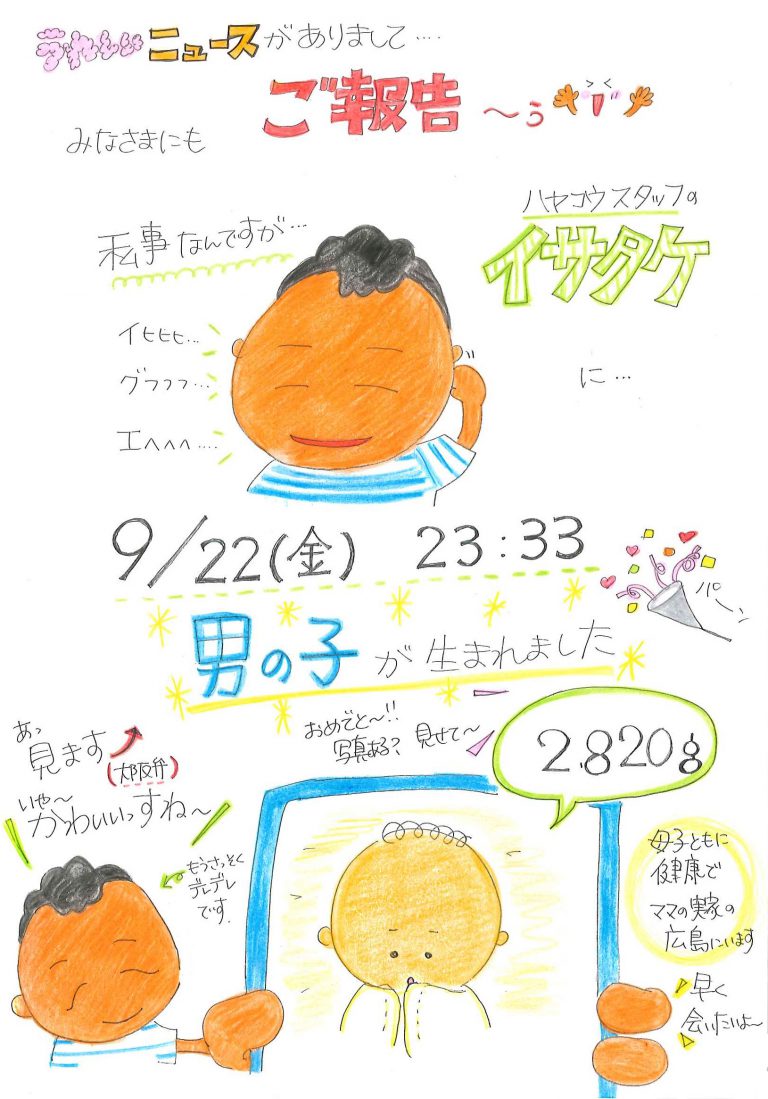 うれしいニュースがありまして‥‥
みなさまにも
ご報告～う
私事なんですが…
ハヤコウスタッフの
イサタケ
イヒヒヒ…
グフフフ…
エヘヘヘ‥‥
に…
9/22(金) 23:33
パーン
男の子が生まれました
おめでと～!!
写真ある? 見せて～
2,820g
あっ
見ます
(大阪弁)
いや～
かわいいっすね～
もうさっそく
デレデレ
です.
母子ともに
健康で
ママの実家の
広島にいます
早く
会いたいよ～